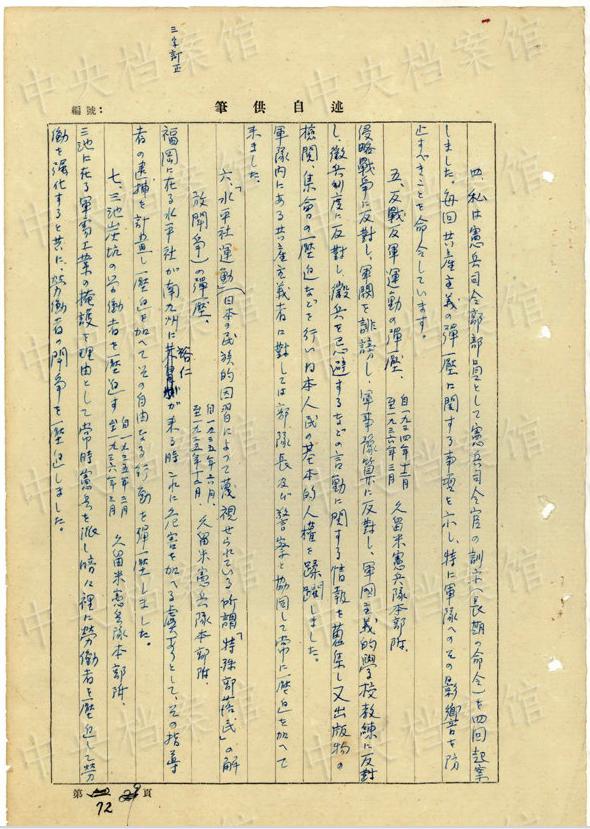 三字訂正
述自供筆
編號：
四、私は憲兵司令部部員として憲兵司令官の訓示(長期の命令)を四回起案
しました。毎回共産主義の弾圧に関する事項を示し、特に軍隊へのその影響を防
止すべきことを命令しています。
五、反戦反軍運動の弾圧、自一九三四年十一月 至一九三六年三月 久留米憲兵隊本部附、
侵略戦争に反対し、軍閥を誹謗し、軍事予算に反対し、軍国主義的學校教練に反対
し、徴兵制度に反対し、徴兵を忌避するなどの言動に関する情報を蒐集し又出版物の
檢閲、集會の圧迫などを行い日本人民の基本的人権を蹂躙しました。
軍隊内にある共産主義者に對しては部隊長及び警察と協同して常に圧迫を加へて
来ました。
六、「水平社運動」(日本の民族的因習によって蔑視せられている所謂「特殊部落民」の解
放闘争)の弾壓、自一九三五年六月 至一九三五年十二月 久留米憲兵隊本部附、
福岡に在る水平社が南九州に裕仁が来る時これに危害を加へる虞ありとして、その指導
者の逮捕を計畫し圧迫を加へてその自由なる行動を弾圧しました。
七、三池炭坑の労働者を圧迫す 自一九三五年三月 至一九三六年三月 久留米憲兵隊本部附、
三池に在る軍需工業の掩護を理由として常時憲兵を派し暗々裡に労働者を圧迫して労
働を强化すると共に、労働者の闘争を圧迫しました。
第 頁
72
中央档案馆
中央档案馆
中央档案馆
中央档案馆